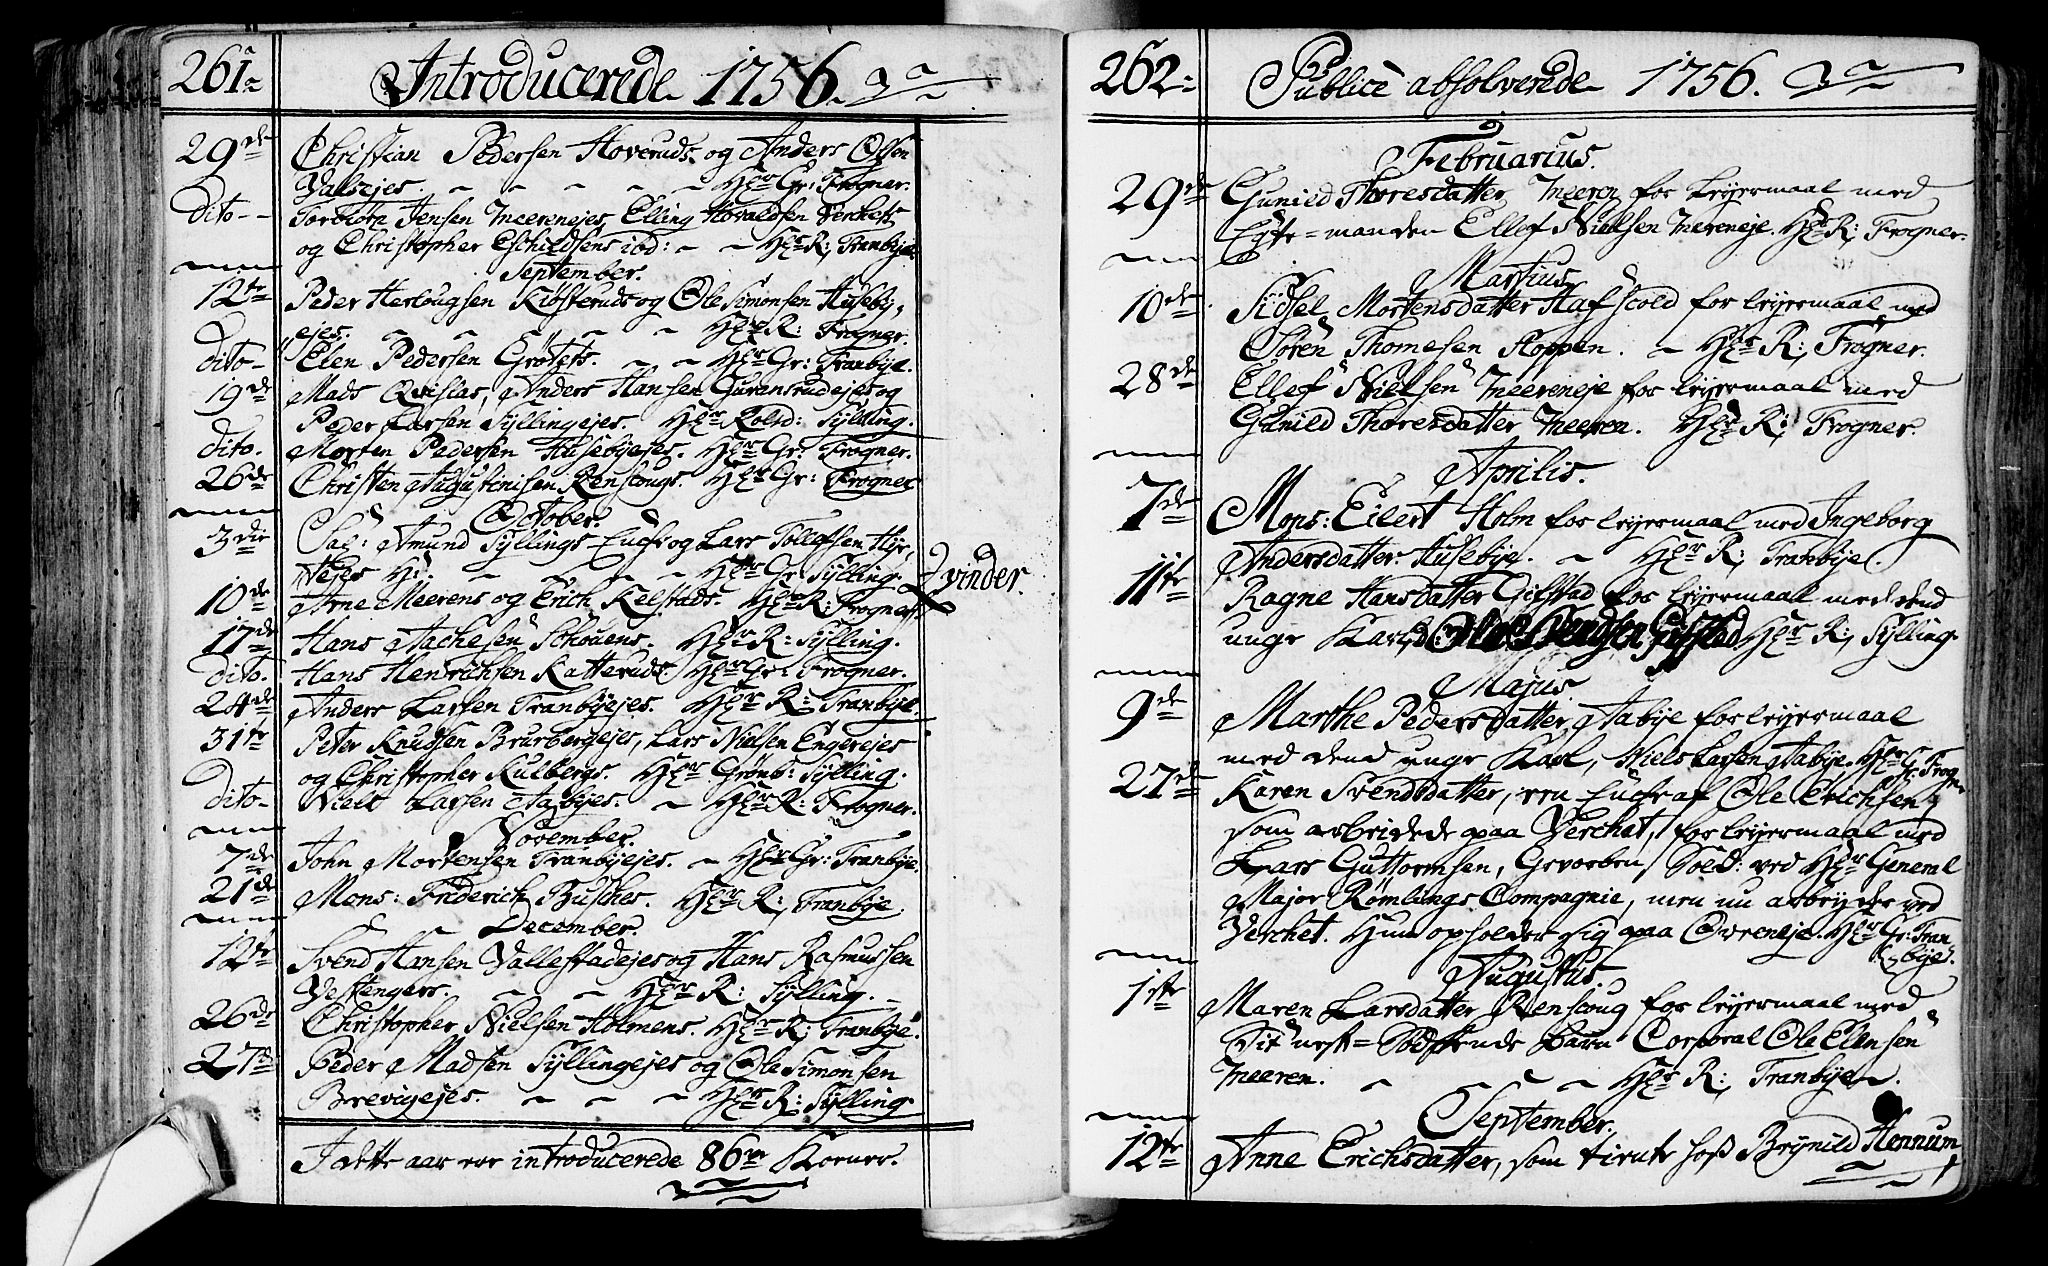 261.
Introducerede 1756.
29de Christian Pedersen Hoveruds og Anders Olsen
Valsejes. Hr Gr: Frogner.
Dito Torbiørn Jensen Meerenejes, Elling Hovaldsen Verchets
og Christopher Eschildsens ibd: Hr R: Tranbye.
September.
12te Peder Herlougsen Kiøsteruds og Ole Simonsen Huseby-
ejes. Hr R: Frogner.
Dito Elen Pedersen Grøtets. Hr Gr: Tranbye.
19de Mads Qvislas, Anders Hansen Guransrudejes og
Peder Larsen Syllingejes. Hr Rolsd: Sylling.
Dito. Morten Pedersen Husebyejes. Hr Gr: Frogner.
26de Christen Augustinisen Renscougs. Hr Gr: Frogner
October.
3die Sal: Amund Syllings Enche og Lars Tollefsen
ejes Hr Gr: Sylling.
10de Arne Meerens og Erich Kelstads. Hr R: Frogner
qvinder.
17de Hans Aachesen Schouens. Hr R: Sylling.
Dito. Hans Henrichsen Katteruds. Hr Gr: Frogner.
24de Anders Larsen Tranbyejes. Hr R: Tranbye.
31te Peter Knudsen Brurbergejes, Lars Nielsen Engerejes
og Christopher Kulbergs. Hr Grønb: Sylling.
Dito Niels Larsen Aabyes. Hr R: Frogner.
November.
7de John Mortensen Tranbyejes. Hr Gr: Tranbye.
21de Mons: Friderich Busches. Hr R: Tranbye.
December.
12te Svend Hansen Vallestadejes og Hans Rasmussen
Vestengers. Hr R: Sylling.
26de Christopher Nielsen Holmens. Hr R: Tranbye.
27de Peder Madsen Syllingejes og Ole Simonsen
Brevigejes. Hr R: Sylling
I dette aar var introducerede 86 Koner.
262.
Publicè absolverede 1756.
Februarius.
29de Gunild Thoresdatter Meeren for leyermaal med
Egte-manden Ellef Nielsen Mereneje. Hr R: Frogner.
Martius
10de Sidsel Mortensdatter Hafscold for leyermaal med
Søren Thomesen Hoppen. Hr R: Frogner.
28de Ellef Nielsen Meereneje for leyermaal med
Gunild Thoresdatter Meeren. Hr R: Frogner.
Aprilis.
7de Mons: Eilert Holm for leyermaal med Ingeborg
Andersdatter Husebye. Hr R: Tranbye.
11te Ragne Hansdatter Gifstad for leyermaal med dend
unge Karl, Ole Knudsen Gifstad Hr R: Sylling.
Majus.
9de Marthe Pedersdatter Aabye for leyermaal
med dend unge Karl, Niels Larsen Aabye. Hr Gr: Frogner
27de Karen Svendsdatter, een Enche af Ole Erichsen,
som arbeidede paa Verchet, for leyermaal med
Lars Guttormsen, Gevorben Sold: ved Hr General
Major Rømlings Compagnie, men nu arbeyder ved
Verchet. Hun opholder sig paa Overeneje. Hr Gr: Tran-
bye.
Augustus.
1ste Maren Larsdatter Renscoug for leyermaal med
Sit nest-Sødskende barn Corporal Ole Ellensen
Meeren. Hr R: Tranbye.
September.
12te Anne Erichsdatter, som tiente hos Brynild Hennum